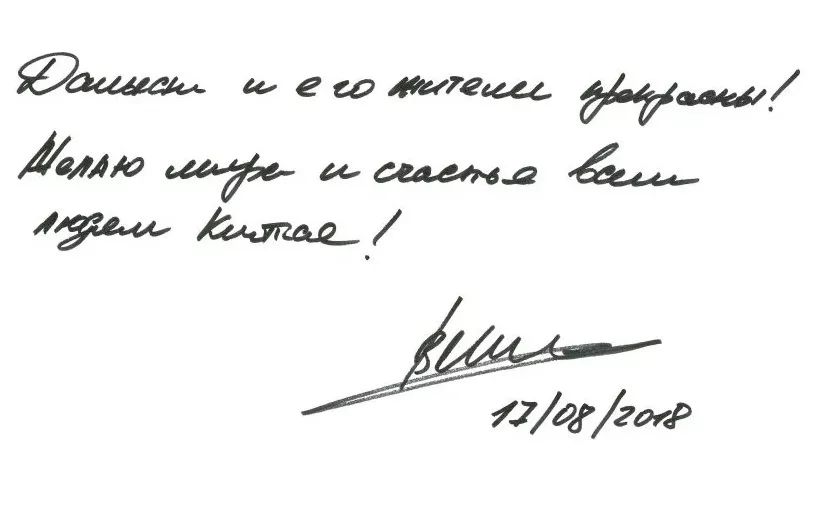 и его жители прекрасны!
Желаю мира и счастья всем
людям Китая!
17/08/2018